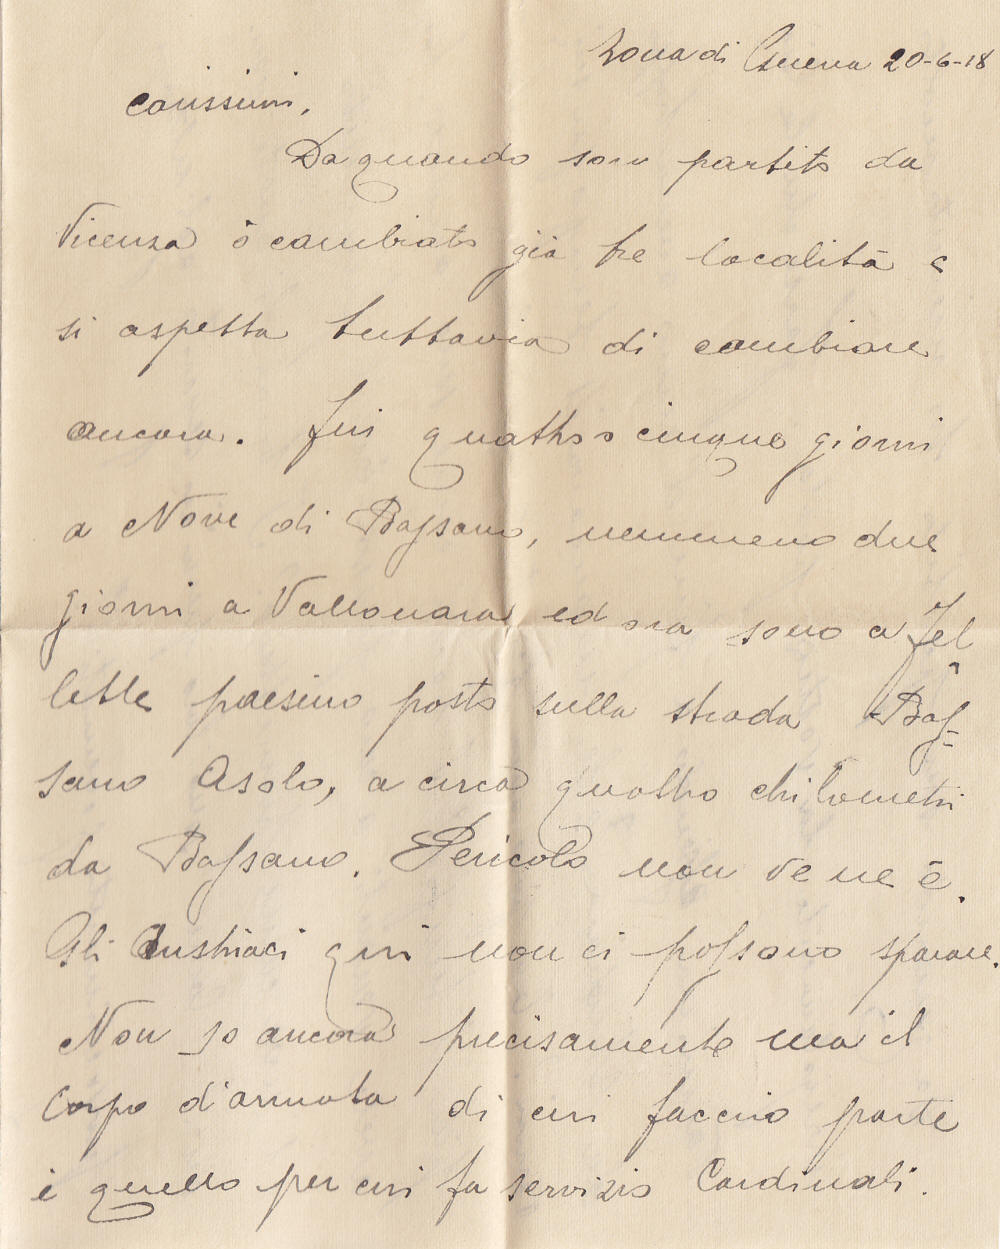 Zona di Guerra 20-6-18
Carissimi,
Da quando son partito da
Vicenza ò cambiato già tre località e
si aspetta tuttavia di cambiare
ancora. Fui quattro o cinque giorni
a Nove di Bassano, nemmeno due
giorni a Vallonara ed ora sono a Fel
lette paesino posto sulla strada Bas=
sano Asolo, a circa quattro chilometri
da Bassano. Pericolo non ve ne è.
Gli Austriaci qui non ci possono sparare.
Non so ancora precisamente ma il
Corpo d'armata di cui faccio parte
è quello per cui fa servizio Cardinali.